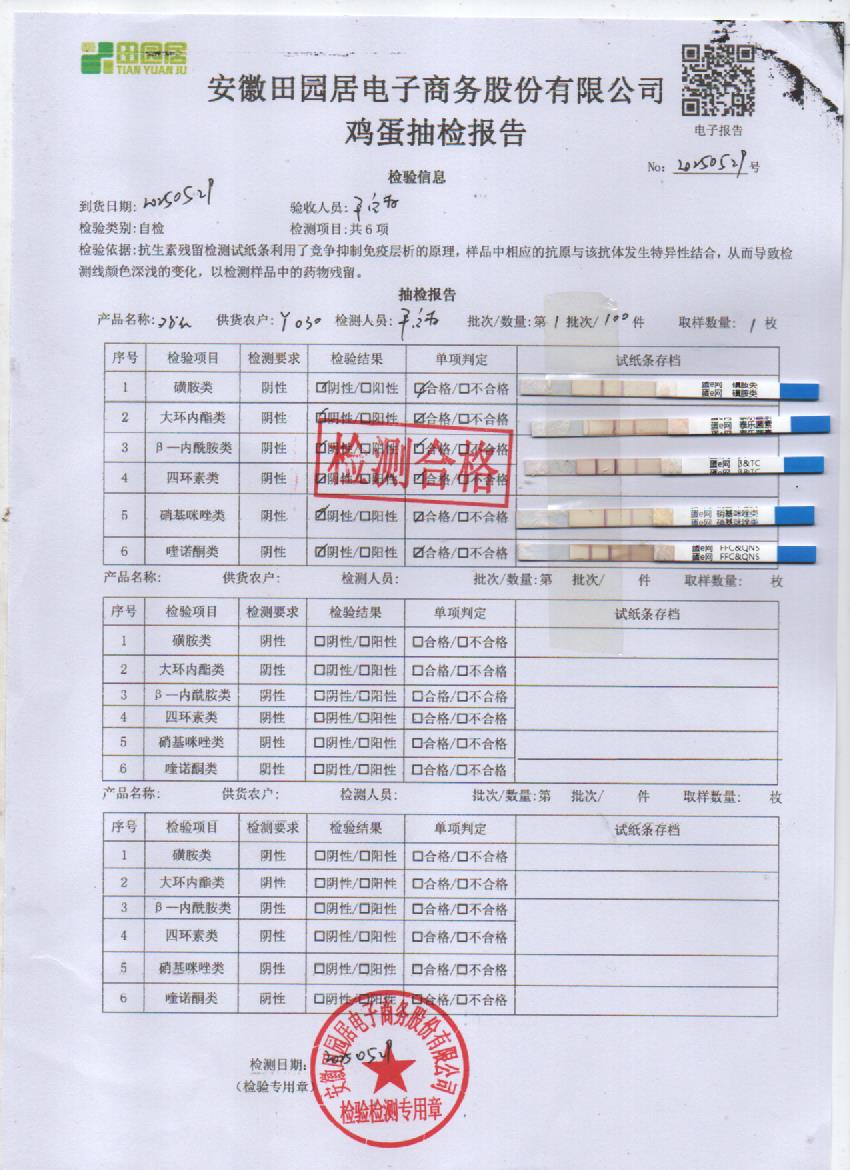 田园居
TIAN YUAN JU
安徽田园居电子商务股份有限公司
鸡蛋抽检报告
电子报告
No: 20250529 号
检验信息
到货日期: 20250529 验收人员:
检验类别: 自检 检测项目: 共 6 项
检验依据: 抗生素残留检测试纸条利用了竞争抑制免疫层析的原理，样品中相应的抗原与该抗体发生特异性结合，从而导致检
测线颜色深浅的变化，以检测样品中的药物残留。
抽检报告
产品名称: 供货农户: Y030 检测人员: 批次/数量: 第 1 批次/ 100 件 取样数量: 1 枚
序号 检验项目 检测要求 检验结果 单项判定 试纸条存档
1 磺胺类 阴性 ☑阴性/☐阳性 ☑合格/☐不合格 蛋e网 磺胺类
蛋e网 磺胺类
2 大环内酯类 阴性 ☑阴性/☐阳性 ☑合格/☐不合格 蛋e网 泰乐菌素
3 β—内酰胺类 阴性 ☑阴性/☐阳性 ☑合格/☐不合格 蛋e网 β&TC
4 四环素类 阴性 ☑阴性/☐阳性 ☑合格/☐不合格
检测合格
5 硝基咪唑类 阴性 ☑阴性/☐阳性 ☑合格/☐不合格 蛋e网 硝基咪唑类
蛋e网 硝基咪唑类
6 喹诺酮类 阴性 ☑阴性/☐阳性 ☑合格/☐不合格 蛋e网 FFC&QNS
蛋e网 FFC&QNS
产品名称: 供货农户: 检测人员: 批次/数量: 第 批次/ 件 取样数量: 枚
序号 检验项目 检测要求 检验结果 单项判定 试纸条存档
1 磺胺类 阴性 ☐阴性/☐阳性 ☐合格/☐不合格
2 大环内酯类 阴性 ☐阴性/☐阳性 ☐合格/☐不合格
3 β—内酰胺类 阴性 ☐阴性/☐阳性 ☐合格/☐不合格
4 四环素类 阴性 ☐阴性/☐阳性 ☐合格/☐不合格
5 硝基咪唑类 阴性 ☐阴性/☐阳性 ☐合格/☐不合格
6 喹诺酮类 阴性 ☐阴性/☐阳性 ☐合格/☐不合格
产品名称: 供货农户: 检测人员: 批次/数量: 第 批次/ 件 取样数量: 枚
序号 检验项目 检测要求 检验结果 单项判定 试纸条存档
1 磺胺类 阴性 ☐阴性/☐阳性 ☐合格/☐不合格
2 大环内酯类 阴性 ☐阴性/☐阳性 ☐合格/☐不合格
3 β—内酰胺类 阴性 ☐阴性/☐阳性 ☐合格/☐不合格
4 四环素类 阴性 ☐阴性/☐阳性 ☐合格/☐不合格
5 硝基咪唑类 阴性 ☐阴性/☐阳性 ☐合格/☐不合格
6 喹诺酮类 阴性 ☐阴性/☐阳性 ☐合格/☐不合格
检测日期: 20250529
（检验专用章）
安徽田园居电子商务股份有限公司
检验检测专用章